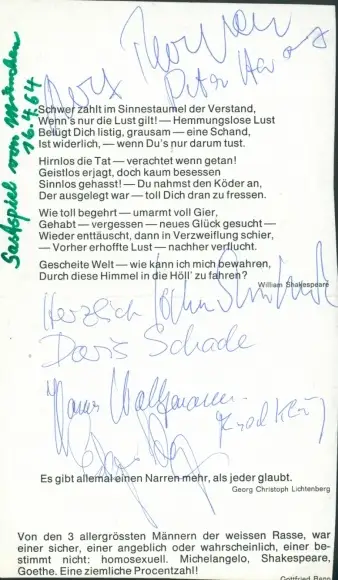 Gastspiel von München
16.4.64
Peter
Schwer zahlt im Sinnestaumel der Verstand,
Wenn's nur die Lust gilt! — Hemmungslose Lust
Belügt Dich listig, grausam — eine Schand,
Ist widerlich, — wenn Du's nur darum tust.
Hirnlos die Tat — verachtet wenn getan!
Geistlos erjagt, doch kaum besessen
Sinnlos gehasst! — Du nahmst den Köder an,
Der ausgelegt war — toll Dich dran zu fressen.
Wie toll begehrt — umarmt voll Gier,
Gehabt — vergessen — neues Glück gesucht —
Wieder enttäuscht, dann in Verzweiflung schier,
— Vorher erhoffte Lust — nachher verflucht.
Gescheite Welt — wie kann ich mich bewahren,
Durch diese Himmel in die Höll' zu fahren?
William Shakespeare
Herzlich
Doris Schade
Es gibt allemal einen Narren mehr, als jeder glaubt.
Georg Christoph Lichtenberg
Von den 3 allergrössten Männern der weissen Rasse, war
einer sicher, einer angeblich oder wahrscheinlich, einer be-
stimmt nicht: homosexuell. Michelangelo, Shakespeare,
Goethe. Eine ziemliche Procentzahl!
Gottfried Benn